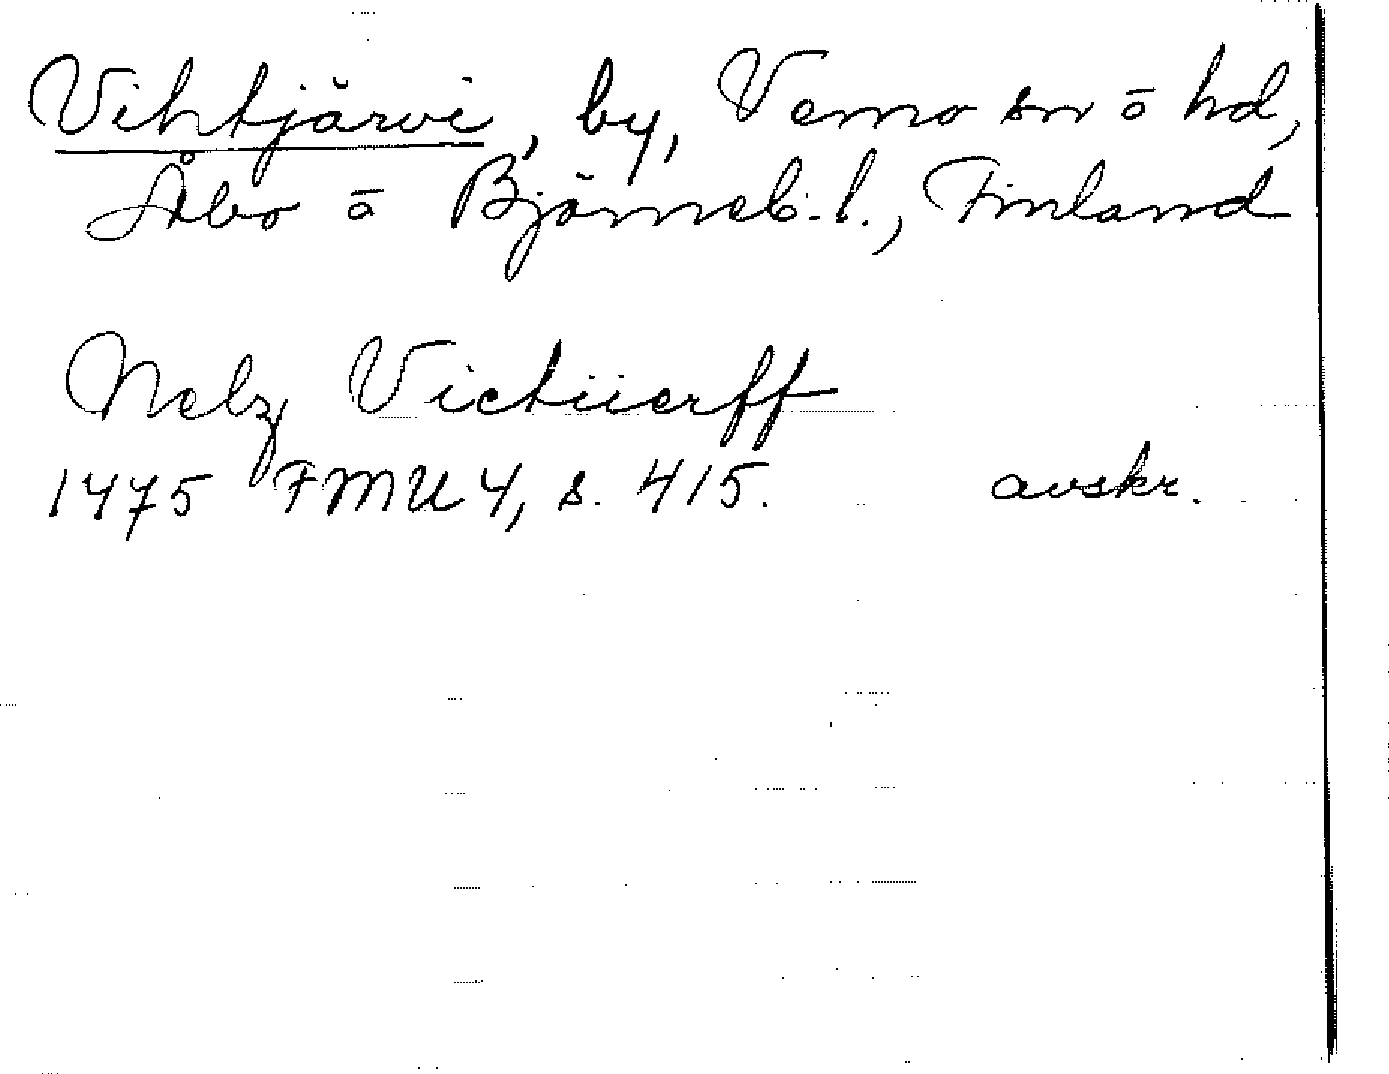 Vihtjärvi, by, Vemo sn o hd,
Åbo o Björneb. l., Finland
Nelz Victüerff
1475 FMU 4, s. 415. avskr.